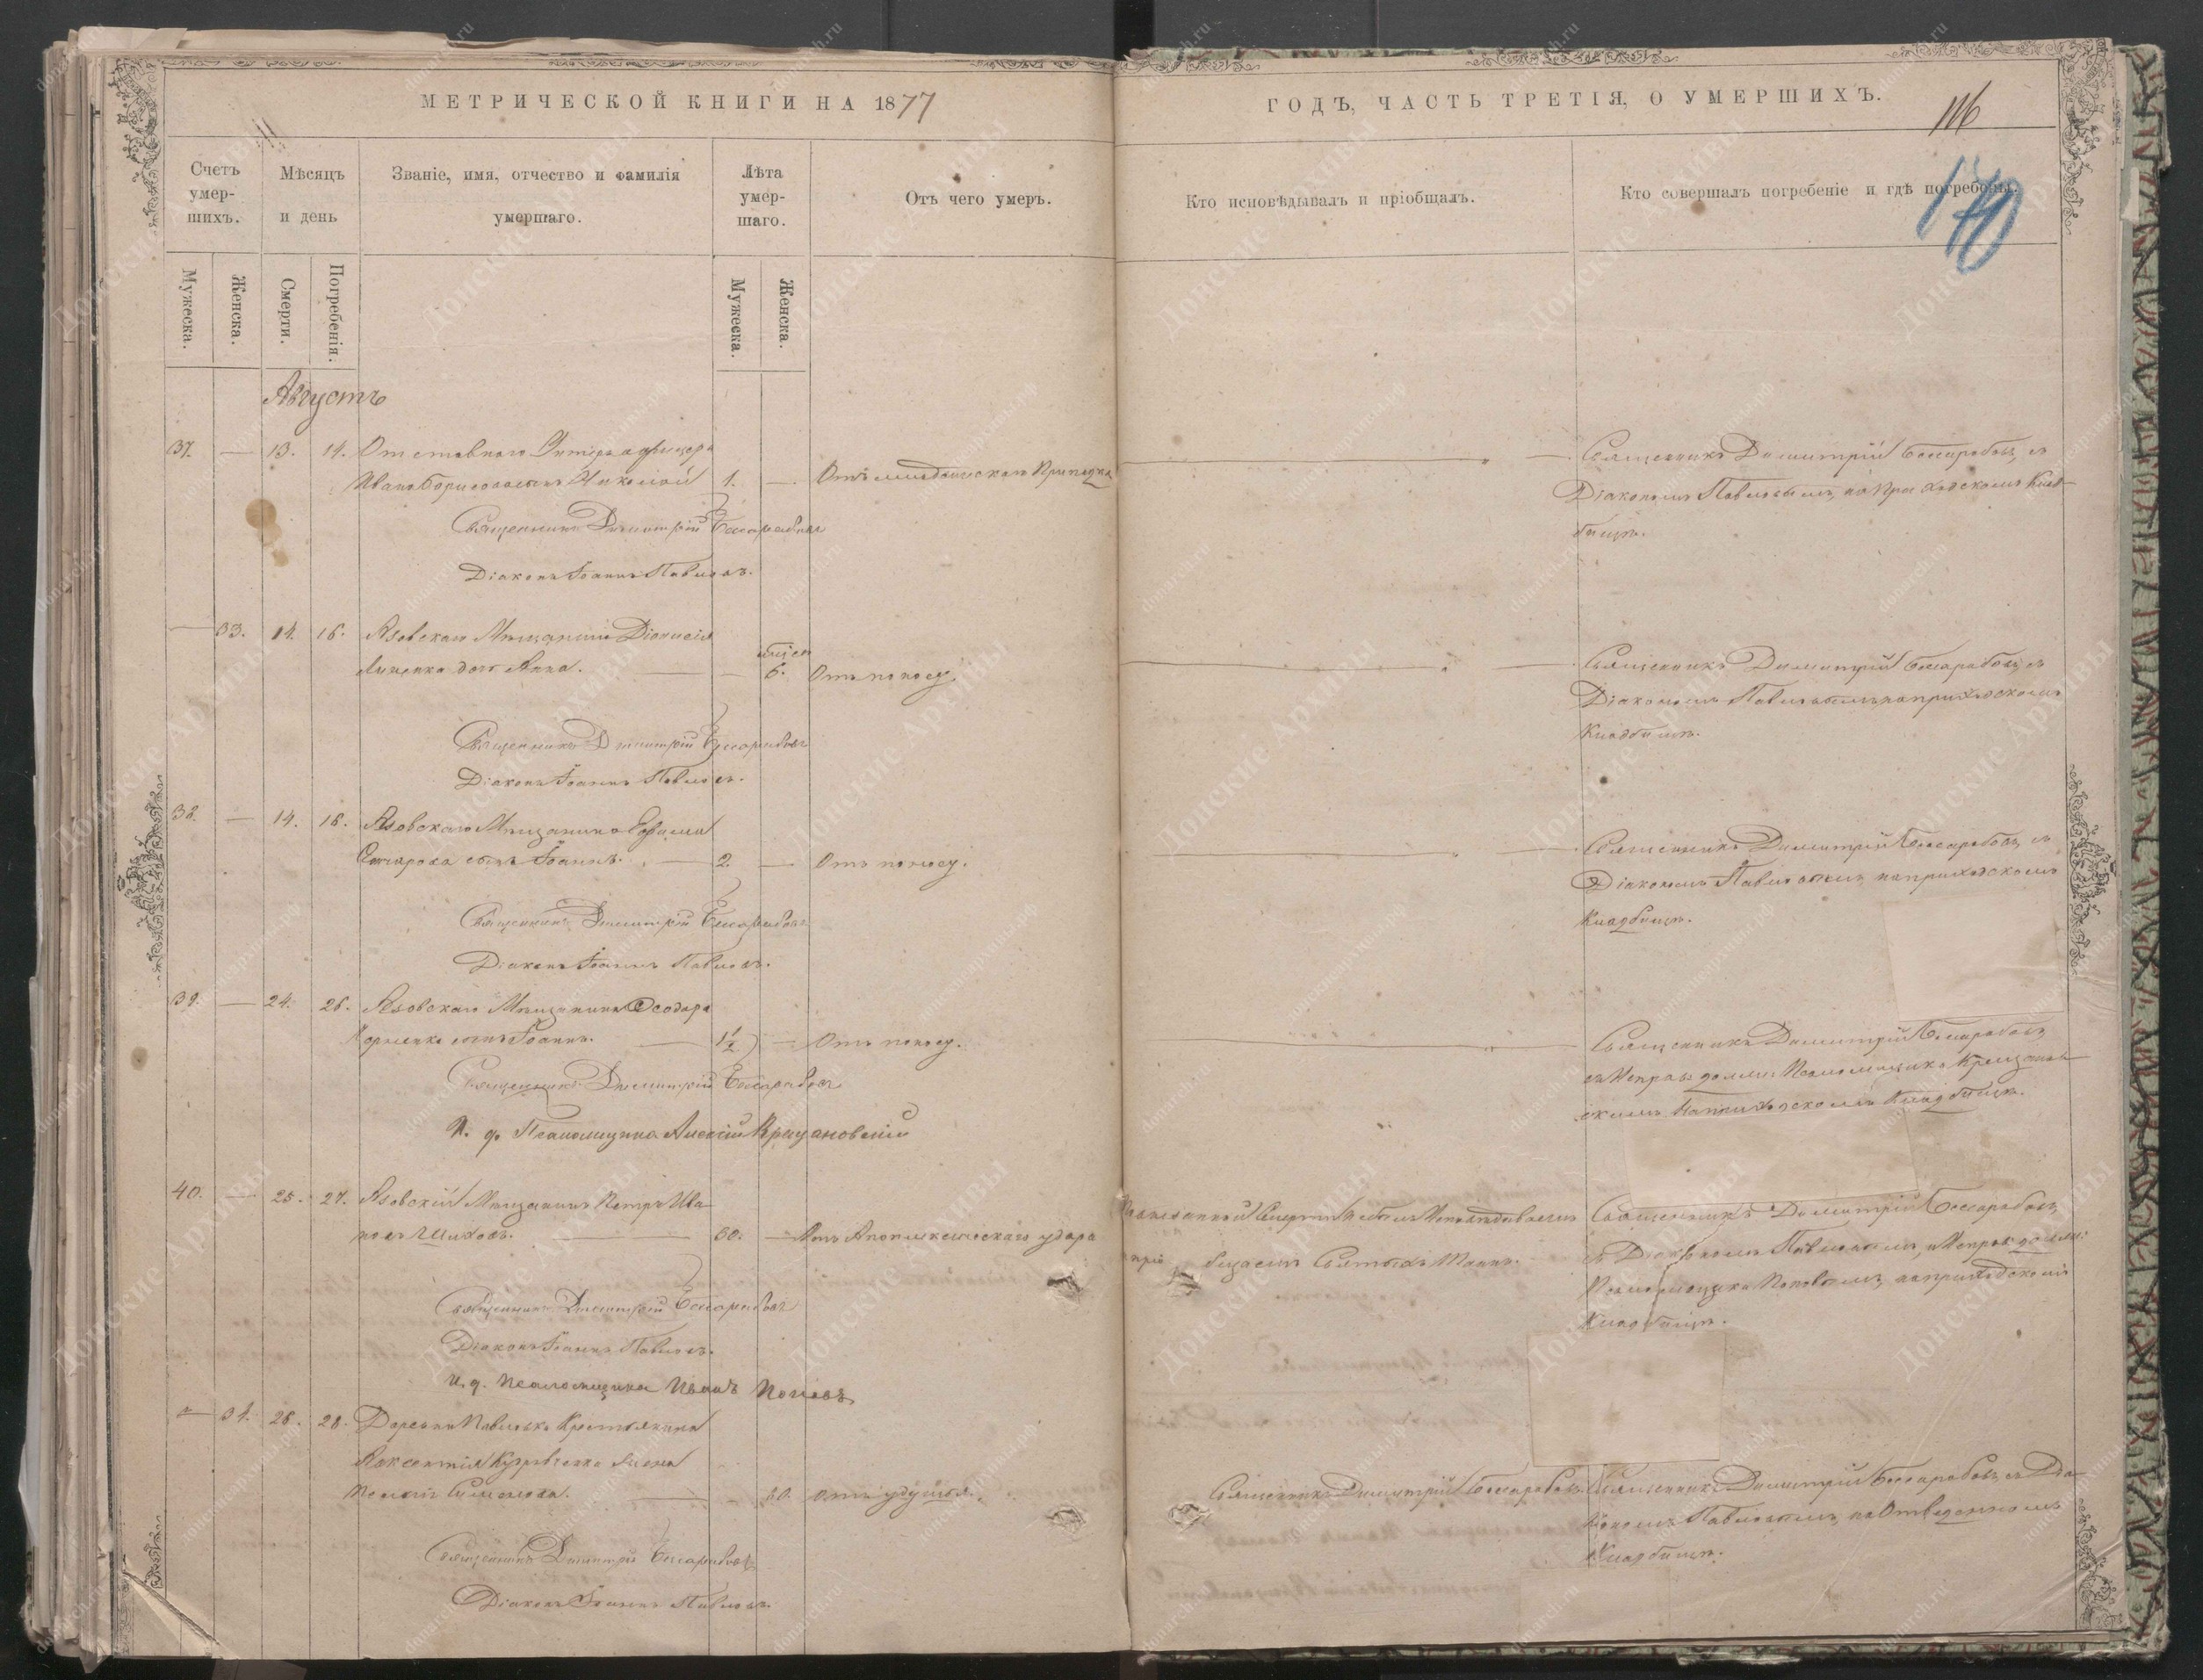 МЕТРИЧЕСКОЙ КНИГИ НА 1877
ГОДЪ, ЧАСТЬ ТРЕТІЯ, О УМЕРШИХЪ.
116
170
Счетъ умер-шихъ.
Мѣсяцъ и день
Званіе, имя, отчество и фамилія умершаго.
Лѣта умер-шаго.
Отъ чего умеръ.
Кто исповѣдывалъ и пріобщалъ.
Кто совершалъ погребеніе и гдѣ погребены.
Мужеска.
Женска.
Смерти.
Погребенія.
Мужеска.
Женска.
Августъ
37. — 13. 14. Отставного Унтеръ офицера
Ивана 1. — Отъ младенческаго Припадка
Священникъ Димитрій Бессарабовъ, съ
Діакономъ Павловымъ, на Приходскомъ Клад-
бищѣ.
Священникъ Димитрій Бессарабовъ
Діаконъ Іоаннъ Павловъ.
— 33. 14. 16. Азовскаго Мѣщанина Діонисія
дочь Анна. — 6. Отъ поносу.
Священникъ Димитрій Бессарабовъ, съ
Діакономъ Павловымъ на приходскомъ
Кладбищѣ.
Священникъ Димитрій Бессарабовъ
Діаконъ Іоаннъ Павловъ.
38. — 14. 16. Азовскаго Мѣщанина Ефима
сынъ Іоаннъ. — 2. — Отъ поносу.
Священникъ Димитрій Бессарабовъ, съ
Діакономъ Павловымъ, на приходскомъ
Кладбищѣ.
Священникъ Димитрій Бессарабовъ
Діаконъ Іоаннъ Павловъ.
39. — 24. 26. Азовскаго Мѣщанина Ѳеодора
сынъ Іоаннъ. — 1½ — Отъ поносу.
Священникъ Димитрій Бессарабовъ,
съ Исправ: долж: Псаломщика Крицанов-
скимъ, На приходскомъ Кладбищѣ.
Священникъ Димитрій Бессарабовъ
И. д. Псаломщика Алексій Крицановскій
40. — 25. 27. Азовскій Мѣщанинъ Петръ Ива-
новъ Шиховъ. — 60. — Отъ Апоплексическаго удара
Святыхъ Таинъ.
Священникъ Димитрій Бессарабовъ,
съ Діакономъ Павловымъ, и Исправ: долж:
Псаломщика Поповымъ, на приходскомъ
Кладбищѣ.
Священникъ Димитрій Бессарабовъ
Діаконъ Іоаннъ Павловъ.
И. д. Псаломщика Иванъ Поповъ
— 34. 26. 28. Деревни Павловки Крестьянина
жена
— 50. Отъ удушья.
Священникъ Димитрій Бессарабовъ.
Священникъ Димитрій Бессарабовъ, съ Діа-
кономъ Павловымъ, на Отведенномъ
Кладбищѣ.
Священникъ Димитрій Бессарабовъ
Діаконъ Іоаннъ Павловъ.